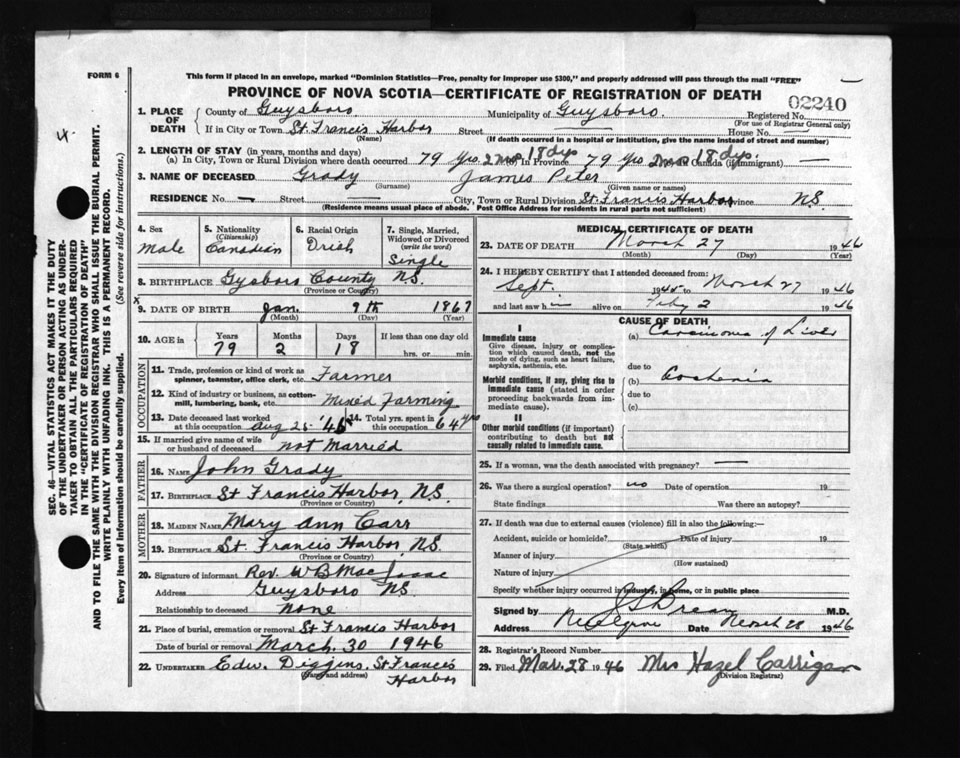 FORM 6
This form if placed in an envelope, marked "Dominion Statistics—Free, penalty for improper use $300," and properly addressed will pass through the mail "FREE"
PROVINCE OF NOVA SCOTIA—CERTIFICATE OF REGISTRATION OF DEATH
02240
1. PLACE OF DEATH
County of Guysboro Municipality of Guysboro. Registered No.
(For use of Registrar General only)
If in City or Town St. Francis Harbor Street — House No. —
(Name) (If death occurred in a hospital or institution, give the name instead of street and number)
2. LENGTH OF STAY (in years, months and days)
(a) In City, Town or Rural Division where death occurred 79 Yrs. 2 mos 18 dys. In Province 79 Yrs 2 mos 18 dys. Canada (if immigrant) —
3. NAME OF DECEASED Grady James Peter
(Surname) (Given name or names)
RESIDENCE No. — Street — City, Town or Rural Division St. Francis Harbor Province N.S.
(Residence means usual place of abode. Post Office Address for residents in rural parts not sufficient)
4. Sex
male
5. Nationality
(Citizenship)
Canadian
6. Racial Origin
Irish
7. Single, Married, Widowed or Divorced
(write the word)
Single
8. BIRTHPLACE Gysboro County N.S.
(Province or Country)
x
9. DATE OF BIRTH Jan. 9th 1867
(Month) (Day) (Year)
10. AGE in Years Months Days If less than one day old
79 2 18 hrs. or min.
OCCUPATION
11. Trade, profession or kind of work as spinner, teamster, office clerk, etc. Farmer
12. Kind of industry or business, as cotton-mill, lumbering, bank, etc. Mixed Farming
13. Date deceased last worked at this occupation Aug 25 '46
14. Total yrs. spent in this occupation 64 yrs
15. If married give name of wife or husband of deceased not Married
FATHER
16. NAME John Grady
17. BIRTHPLACE St Francis Harbor, N.S.
(Province or Country)
MOTHER
18. MAIDEN NAME Mary Ann Carr
19. BIRTHPLACE St. Francis Harbor, N.S.
(Province or Country)
20. Signature of informant Rev. W B MacIsaac
Address Guysboro N.S.
Relationship to deceased none
21. Place of burial, cremation or removal St Francis Harbor
Date of burial or removal March. 30 1946
22. UNDERTAKER Edw. Diggins. St Francis Harbor
(Name and address)
MEDICAL CERTIFICATE OF DEATH
23. DATE OF DEATH March 27 1946
(Month) (Day) (Year)
24. I HEREBY CERTIFY that I attended deceased from:
Sept. 1945 to March 27 1946
and last saw him alive on Feby 2 1946
CAUSE OF DEATH
I
Immediate cause
Give disease, injury or complication which caused death, not the mode of dying, such as heart failure, asphyxia, asthenia, etc.
(a) Carcinoma of Liver
due to
Morbid conditions, if any, giving rise to immediate cause (stated in order proceeding backwards from immediate cause).
(b)
due to
(c)
II
Other morbid conditions (if important) contributing to death but not causally related to immediate cause.
25. If a woman, was the death associated with pregnancy? —
26. Was there a surgical operation? no Date of operation 19
State findings Was there an autopsy?
27. If death was due to external causes (violence) fill in also the following:—
Accident, suicide or homicide? Date of injury 19
(State which)
Manner of injury
(How sustained)
Nature of injury
Specify whether injury occurred in industry, in home, or in public place
Signed by M.D.
Address Date March 28 1946
28. Registrar's Record Number
29. Filed Mar. 28 1946 Mrs Hazel Carrigan
(Division Registrar)
SEC. 46—VITAL STATISTICS ACT MAKES IT THE DUTY
OF THE UNDERTAKER OR PERSON ACTING AS UNDER-
TAKER TO OBTAIN ALL THE PARTICULARS REQUIRED
IN THE "CERTIFICATE OF REGISTRATION OF DEATH"
AND TO FILE THE SAME WITH THE DIVISION REGISTRAR WHO SHALL ISSUE THE BURIAL PERMIT.
WRITE PLAINLY WITH UNFADING INK. THIS IS A PERMANENT RECORD.
Every item of information should be carefully supplied. (See reverse side for instructions.)